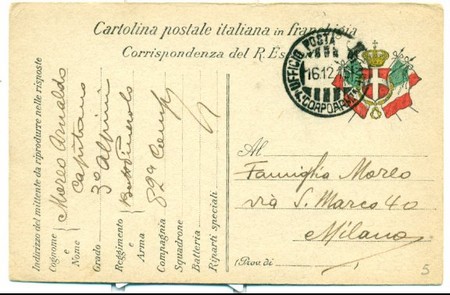 Cartolina postale italiana in franchigia
Corrispondenza del R. Es
UFFICIO POSTA
16.12.
CORPO
Indirizzo del mittente da riprodurre nelle risposte
Cognome e Nome
Moreo Arnaldo
Capitano
Grado
3º Alpini
Reggimento e Arma
Compagnia 82ª Comp
Squadrone
Batteria
Riparti speciali
Al
Famiglia Moreo
via S. Marco 40
Milano
(Prov. di
5